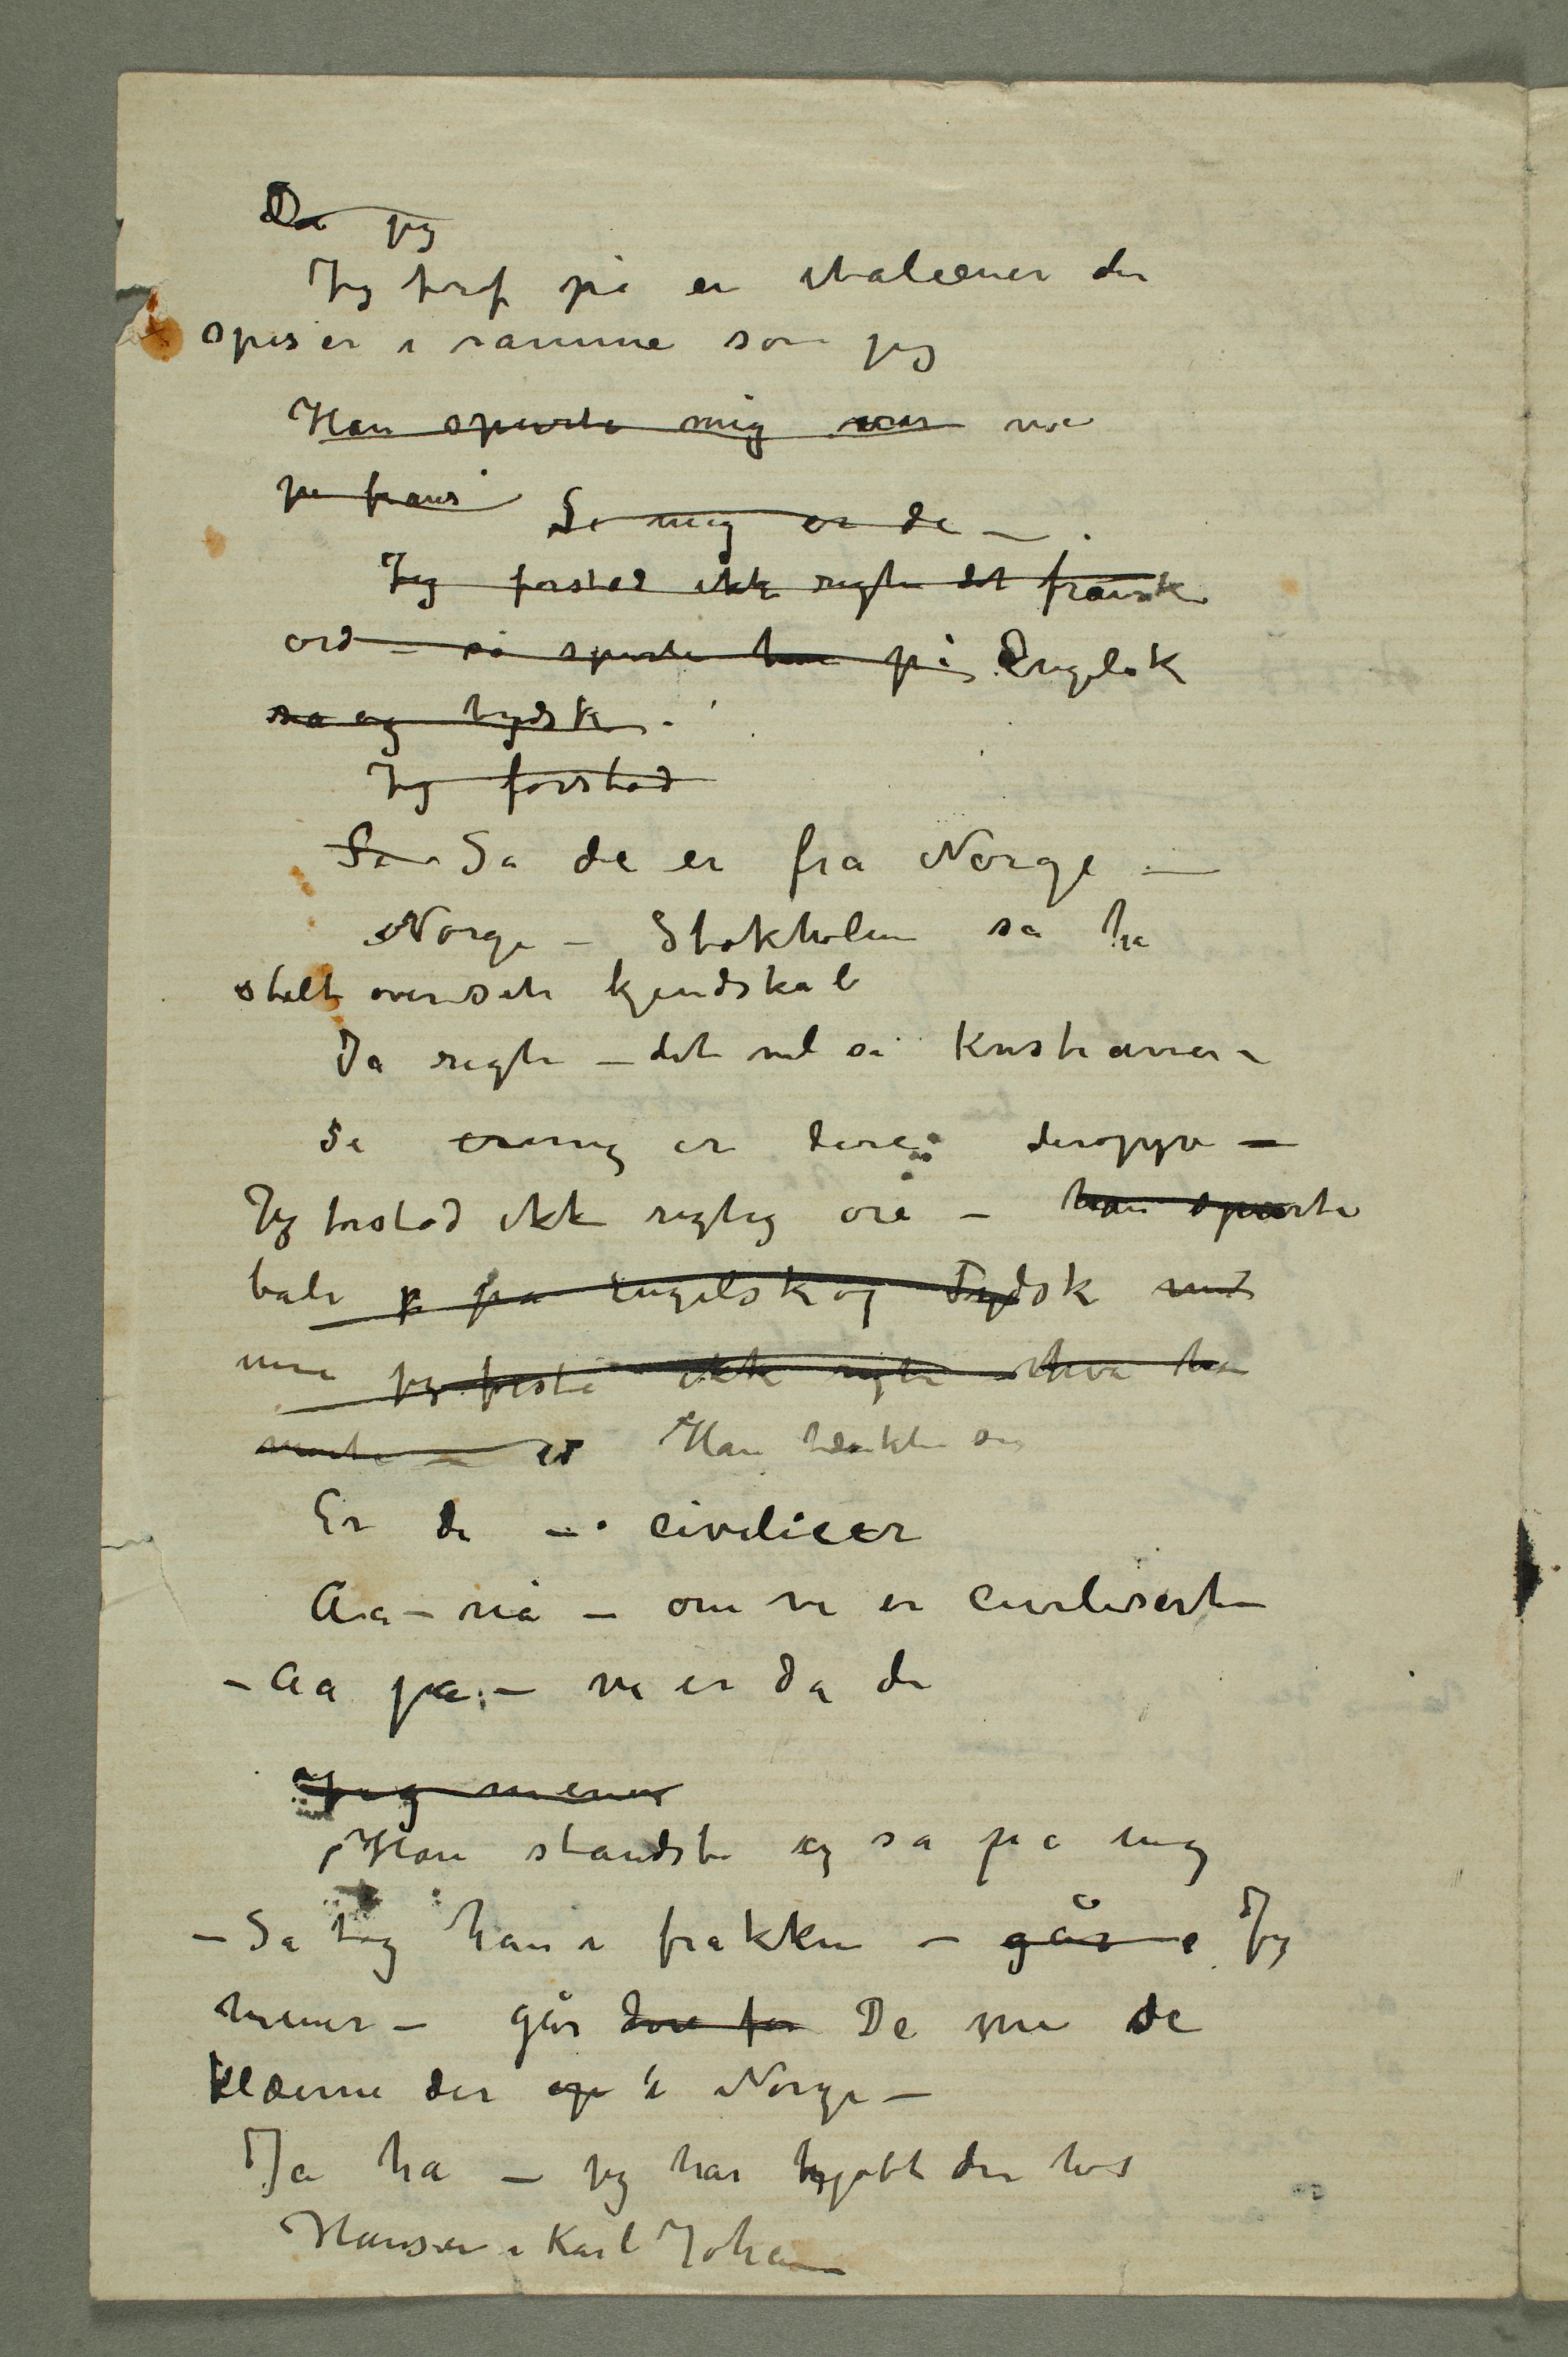 Da jeg
Jeg traf på en italiener der
spiser i samme som jeg
Han spurte mig var noe
på frans
Si mig er de –
Jeg forstod ikke rigti det franske
ord – så spurte han på Engelsk
så og tydsk –
Jeg forstod
Så Så de er fra Norge –
Norge – Stokholm sa ha
stolt over sit kjendskab
Ja rigti – det vil si Kristiania –
Si mig er dere deroppe –
Jeg forstod ikke rigtig ore – han spurte
både på engelsk og Tydsk men
men jeg forsto ikke rigti hva han
mente – Han tænkte sig
Er de – civilicer
Aa – nå – om vi er civiliserte
– Aa ja – vi er da de
Jeg mener
Han standste og så på mig
– Så tog han i frakken – går Jeg
mener – går dere for De me de
klæerne der op i Norge –
Ja ha – jeg har kjøbt den hos
Hansen i Karl Johan